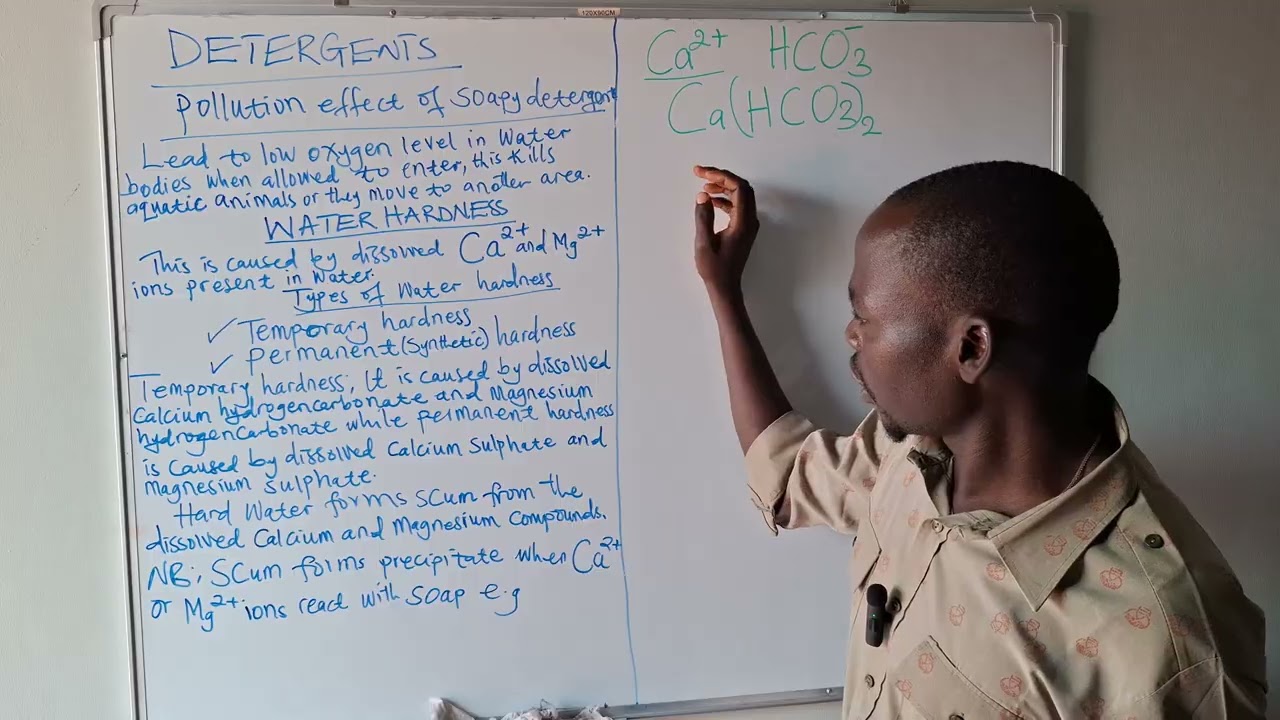 120X90CM
DETERGENTS
Pollution effect of soapy detergent
Lead to low oxygen level in water
bodies when allowed to enter, this kills
aquatic animals or they move to another area.
WATER HARDNESS
This is caused by dissolved Ca²⁺ and Mg²⁺
ions present in water.
Types of Water hardness
✓ Temporary hardness
✓ Permanent (Synthetic) hardness
Temporary hardness; It is caused by dissolved
Calcium hydrogencarbonate and Magnesium
hydrogencarbonate while permanent hardness
is caused by dissolved Calcium Sulphate and
Magnesium sulphate.
Hard Water forms scum from the
dissolved Calcium and Magnesium Compounds.
NB; Scum forms precipitate when Ca²⁺
or Mg²⁺ ions react with soap e.g
Ca²⁺ HCO₃⁻
Ca(HCO₃)₂